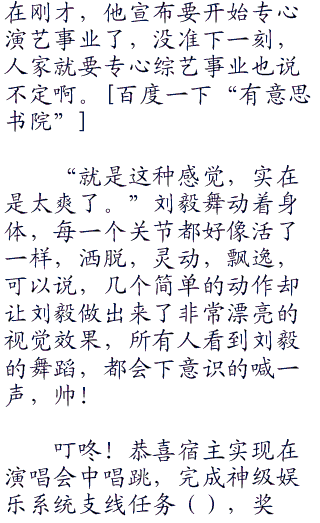 在刚才，他宣布要开始专心
演艺事业了，没准下一刻，
人家就要专心综艺事业也说
不定啊。[百度一下“有意思
书院”]
“就是这种感觉，实在
是太爽了。”刘毅舞动着身
体，每一个关节都好像活了
一样，洒脱，灵动，飘逸，
可以说，几个简单的动作却
让刘毅做出来了非常漂亮的
视觉效果，所有人看到刘毅
的舞蹈，都会下意识的喊一
声，帅！
叮咚！恭喜宿主实现在
演唱会中唱跳，完成神级娱
乐系统支线任务（），奖